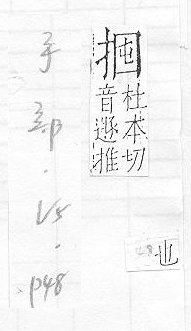 杜本切
音遯推
48 也
手部.15.p48